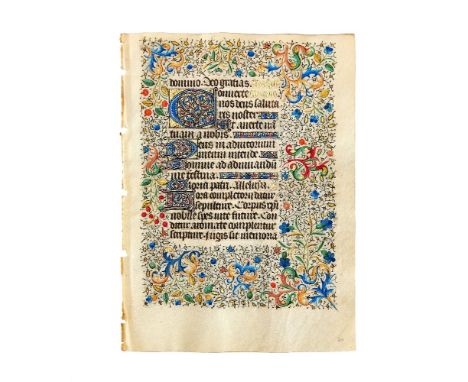 domino. Deo gratias.
Converte
nos deus saluta
ris noster.
Et averte
tuam a nobis.
Deus in adiutorium
meum intende.
Domine ad adiuvandū
me festina.
Gloria patri. Alleluia.
hora completorii datur
sepulture. Corpus xpi
nobile spes vite future. Con
ditur aromate complentur
scripture. Iugis sit memoria